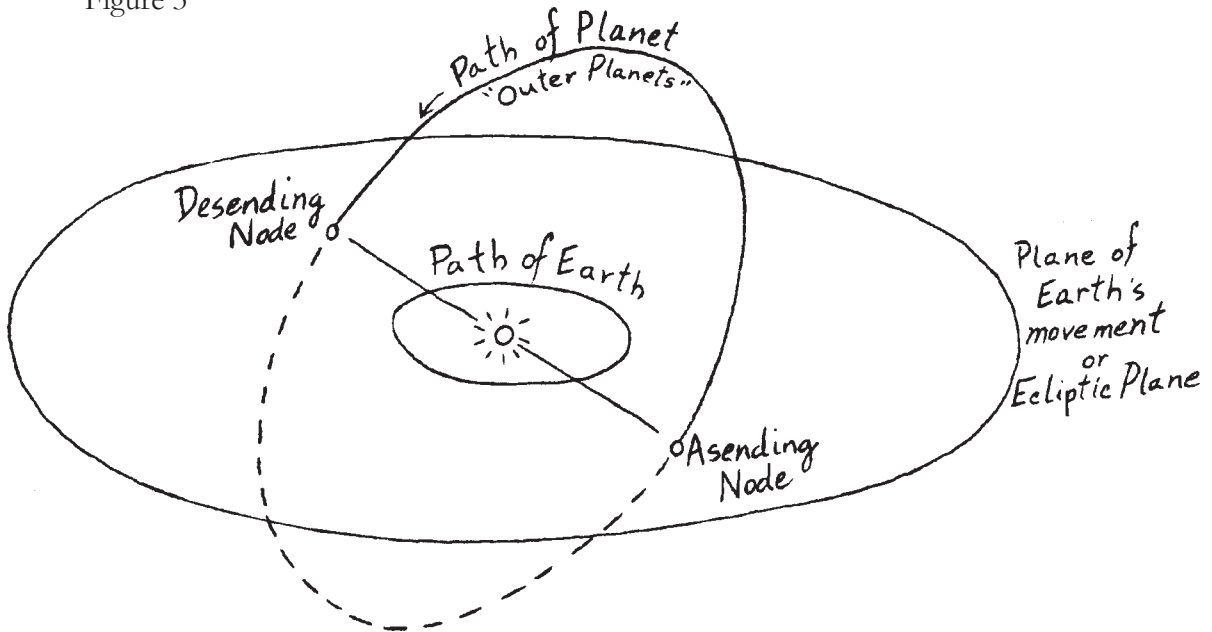 Figure 5
Path of Planet
"Outer Planets"
Desending
Node
Path of Earth
Plane of
Earth's
movement
or
Ecliptic Plane
Asending
Node